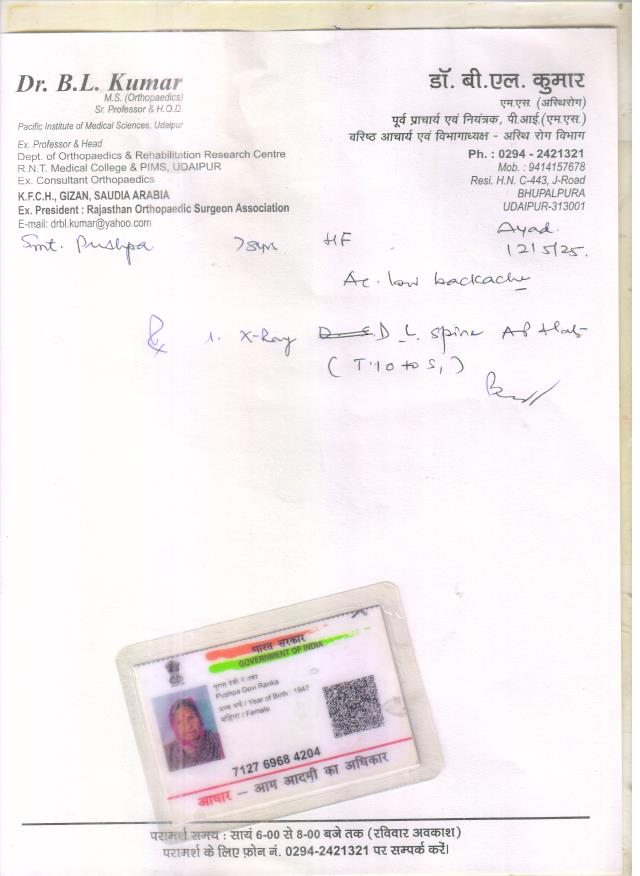 Dr. B.L. Kumar
M.S. (Orthopaedics)
Sr. Professor & H.O.D.
Pacific Institute of Medical Sciences, Udaipur
Ex. Professor & Head
Dept. of Orthopaedics & Rehabilitation Research Centre
R.N.T. Medical College & PIMS, UDAIPUR
Ex. Consultant Orthopaedics
K.F.C.H., GIZAN, SAUDIA ARABIA
Ex. President : Rajasthan Orthopaedic Surgeon Association
E-mail: drbl.kumar@yahoo.com
डॉ. बी.एल. कुमार
एम.एस. (अस्थिरोग)
पूर्व प्राचार्य एवं नियंत्रक, पी.आई.(एम.एस.)
वरिष्ठ आचार्य एवं विभागाध्यक्ष - अस्थि रोग विभाग
Ph. : 0294 - 2421321
Mob. : 9414157678
Resi. H.N. C-443, J-Road
BHUPALPURA
UDAIPUR-313001
Smt. Pushpa 78yrs HF Ayad.
12/5/25.
Ac. low backache
Rx 1. X-Ray D.L. Spine AP &
(T10 to S1)
भारत सरकार
GOVERNMENT OF INDIA
Pushpa Devi Ranka
जन्म वर्ष / Year of Birth : 1947
महिला / Female
7127 6968 4204
आधार - आम आदमी का अधिकार
परामर्श समय : सायं 6-00 से 8-00 बजे तक (रविवार अवकाश)
परामर्श के लिए फ़ोन नं. 0294-2421321 पर सम्पर्क करें।